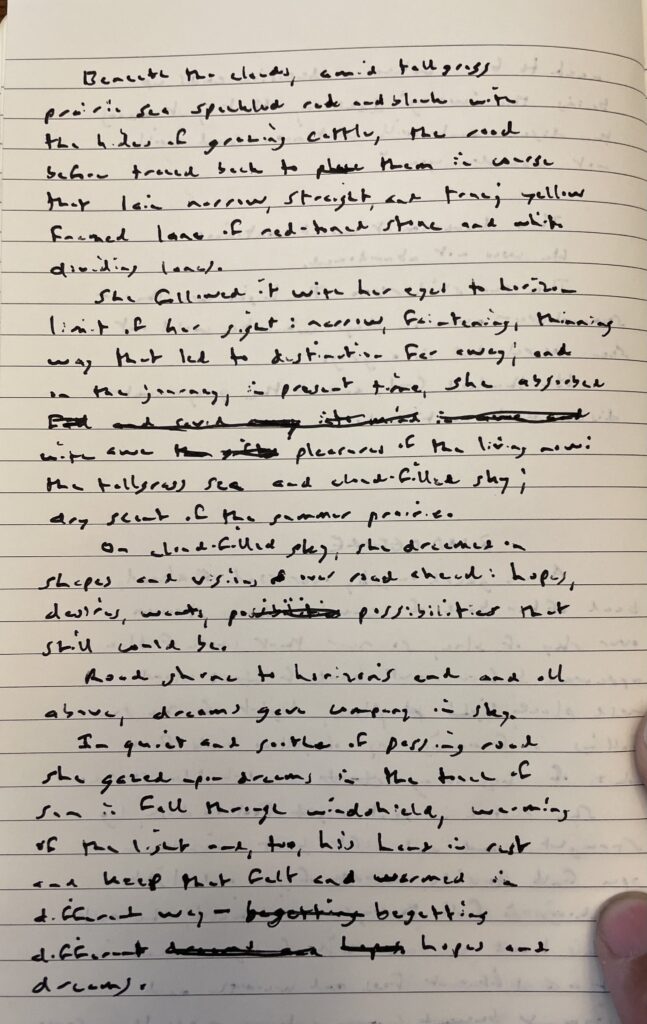 Beneath the clouds, amid tallgrass
prairie sea speckled rude and black with
the hides of grazing cattle, the road
before traced back to them in course
that lain narrow, straight, and true; yellow
framed lane of red-toned stone and white
dividing lanes.
She followed it with her eyes to horizon
limit of her sight: narrow, faintening, thinning
way that led to destination far away; and
on the journey, in present time, she absorbed
with awe pleasures of the living now:
the tallgrass sea and cloud-filled sky;
dry scent of the summer prairie.
On cloud-filled sky, she dreamed on
shapes and visions over road ahead: hopes,
desires, wants, possibilities that
still could be.
Road shone to horizon's end and all
above, dreams gave company in sky.
In quiet and soothe of passing road
she gazed upon dreams in the touch of
sun in fall through windshield, warming
of the light and, too, his hand in rest
and keep that felt and warmed in
different way — begetting
different hopes and
dreams.